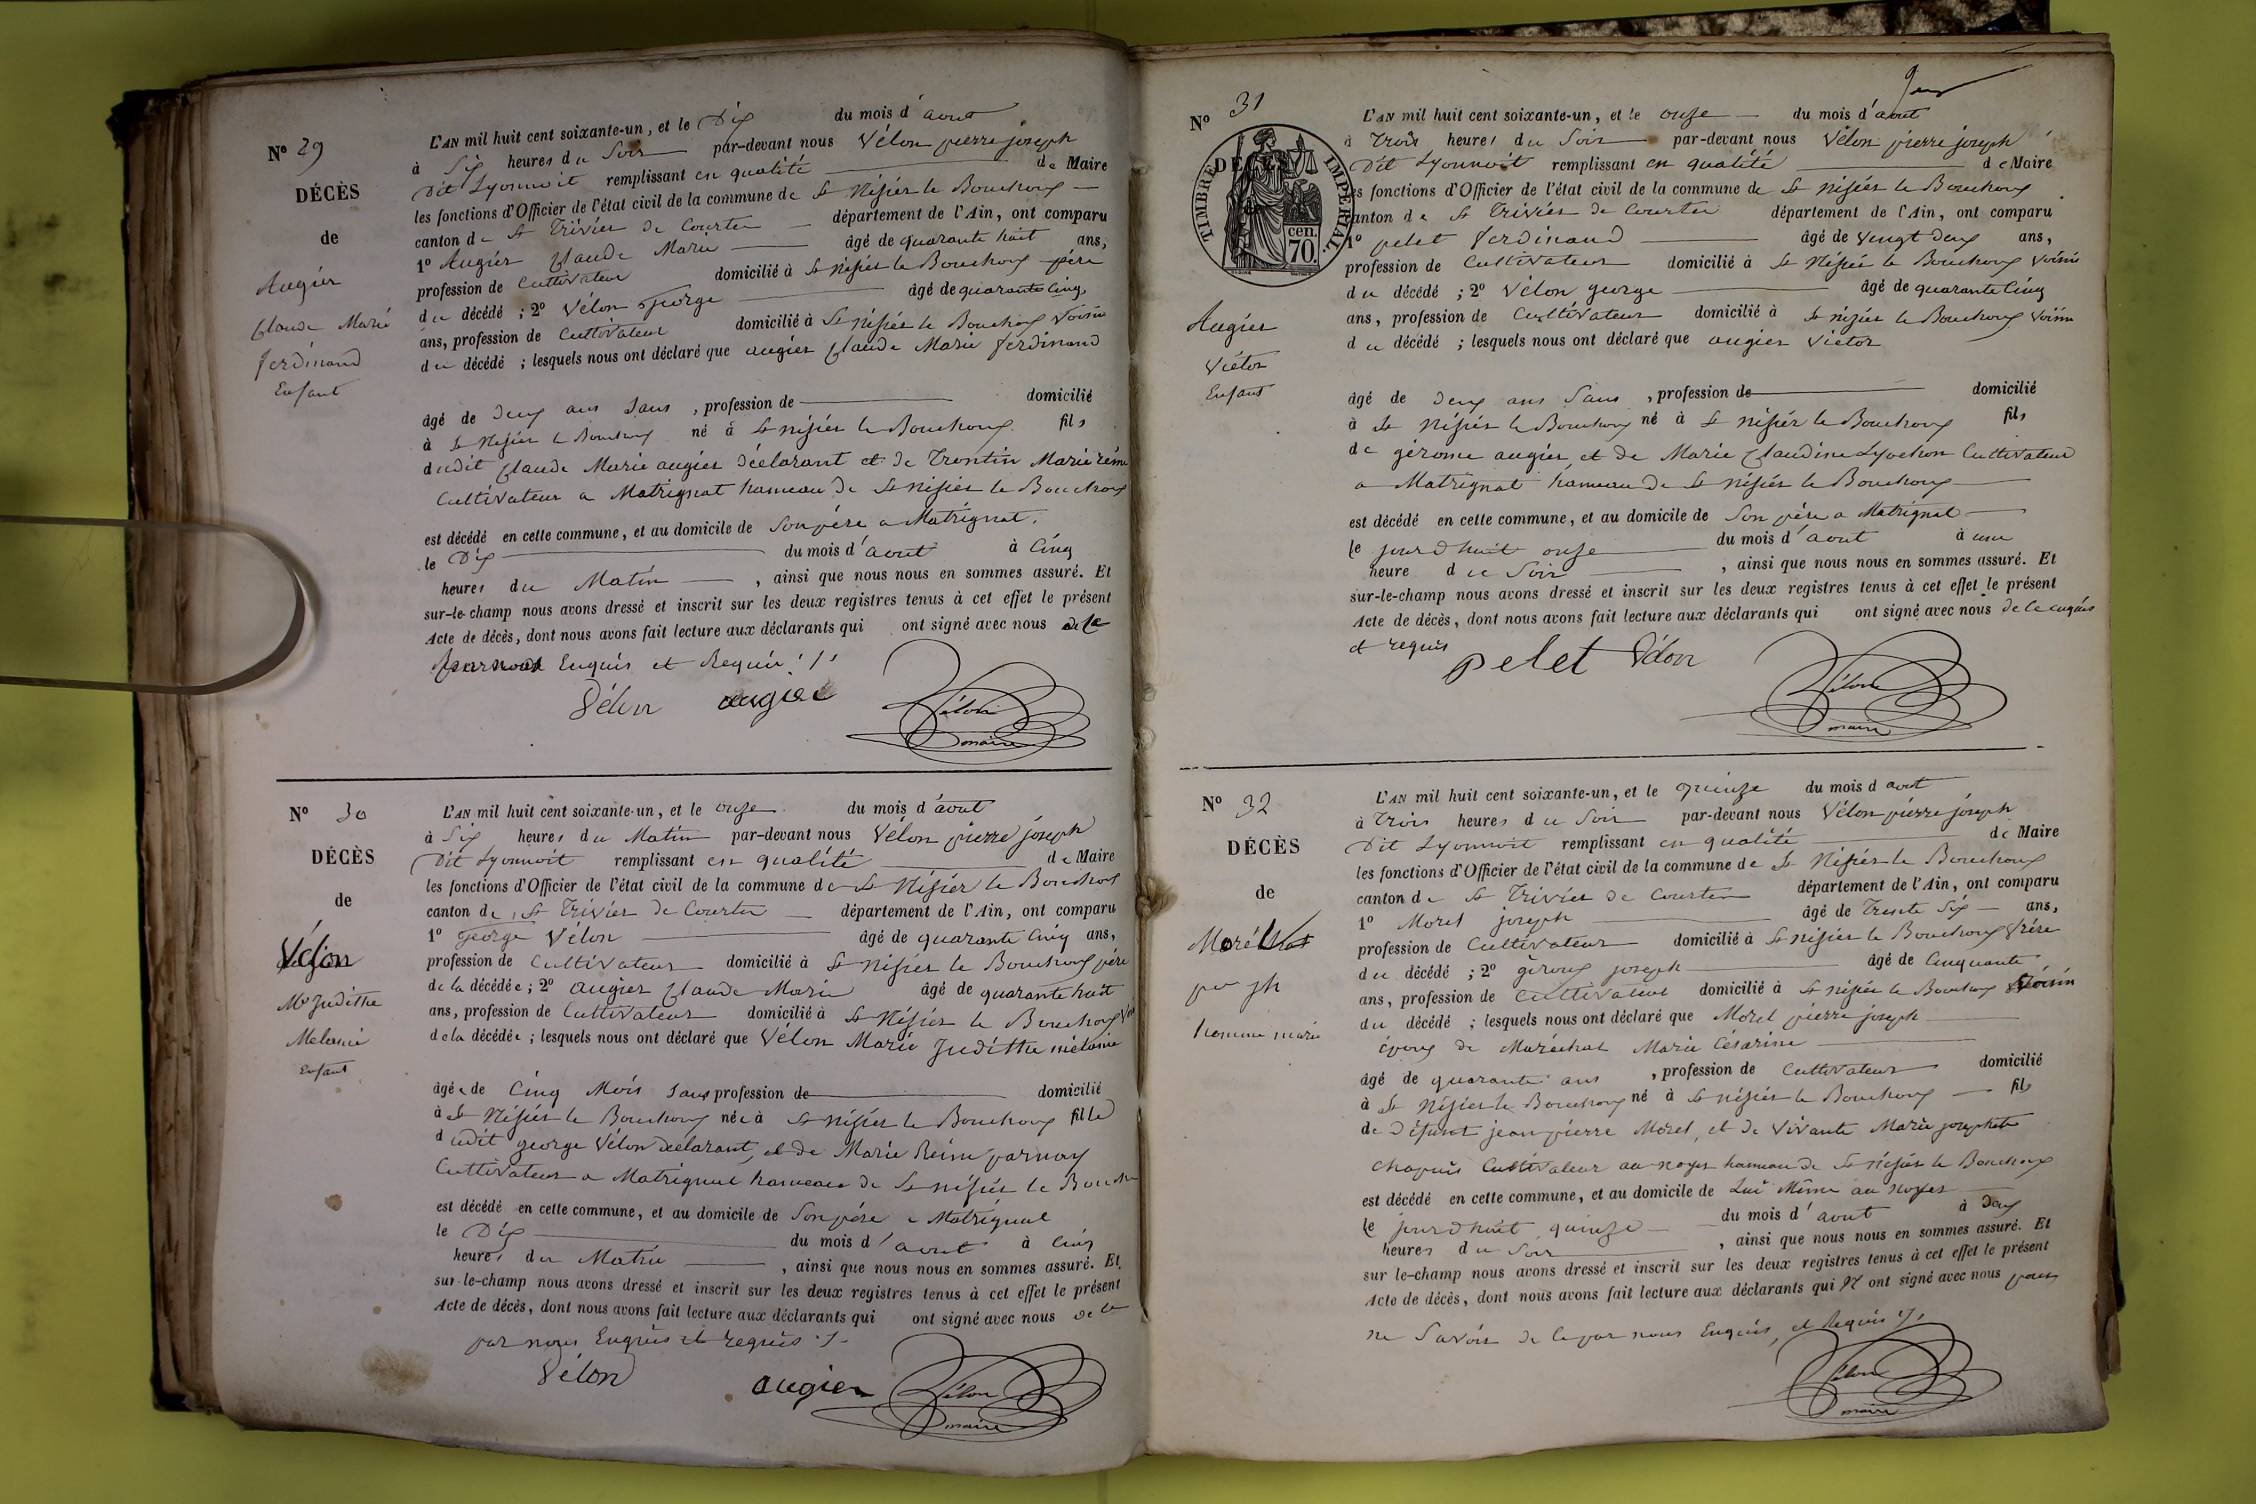 N° 29
DÉCÈS
de
Augier
Claude Marie
Ferdinand
Enfant
L'AN mil huit cent soixante-un, et le Dix du mois d'aout
à Six heures du Soir par-devant nous Vélon pierre joseph
Dit Lyonnoit remplissant en qualité de Maire
les fonctions d'Officier de l'état civil de la commune de St Nisier le Bouchoux
canton de St Trivier de Courter département de l'Ain, ont comparu
1° Augier Claude Marie âgé de quarante huit ans,
profession de Cultivateur domicilié à St nisier le Bouchoux père
du décédé ; 2° Vélon George âgé de quarante Cinq
ans, profession de Cultivateur domicilié à St nisier le Bouchoux Voisin
du décédé ; lesquels nous ont déclaré que augier Claude Marie ferdinand
âgé de deux ans Sans , profession de domicilié
à St Nisier le Bouchoux né à St nisier le Bouchoux fils
dudit Claude Marie augier déclarant et de Trontin Marie reine
Cultivateur a Matrignat hameau de St nisier le Bouchoux
est décédé en cette commune, et au domicile de Son père a Matrignat.
le Dix du mois d'aout à Cinq
heures du Matin , ainsi que nous nous en sommes assuré. Et
sur-le-champ nous avons dressé et inscrit sur les deux registres tenus à cet effet le présent
Acte de décès, dont nous avons fait lecture aux déclarants qui ont signé avec nous de le
par nous Enquis et Requis ./.
Vélon augier Vélon
maire
N° 30
DÉCÈS
de
Vélon
Me Judithe
Melanie
Enfant
L'AN mil huit cent soixante-un, et le onze du mois d'aout
à Six heures du Matin par-devant nous Vélon pierre joseph
Dit Lyonnoit remplissant en qualité de Maire
les fonctions d'Officier de l'état civil de la commune de St Nisier le Bouchoux
canton de St Trivier de Courter département de l'Ain, ont comparu
1° George Vélon âgé de quarante Cinq ans,
profession de Cultivateur domicilié à St nisier le Bouchoux père
de la décédée ; 2° augier Claude Marie âgé de quarante huit
ans, profession de Cultivateur domicilié à St Nisier le Bouchoux
de la décédée ; lesquels nous ont déclaré que Vélon Marie Judithe mélanie
âgée de Cinq Mois Sans profession de domicilié
à St Nisier le Bouchoux née à St nisier le Bouchoux fille
dudit george Vélon déclarant, et de Marie Reine parnoy
Cultivateur a Matrignat hameau de St nisier le Bouchoux
est décédé en cette commune, et au domicile de Son père a Matrignat
le Dix du mois d'aout à Cinq
heures du Matin , ainsi que nous nous en sommes assuré. Et
sur-le-champ nous avons dressé et inscrit sur les deux registres tenus à cet effet le présent
Acte de décès, dont nous avons fait lecture aux déclarants qui ont signé avec nous de le
par nous Enquis et requis ./.
Vélon augier Vélon
maire
N° 31
DÉCÈS
TIMBRE IMPÉRIAL.
cen.
70.
Augier
Victor
Enfant
L'AN mil huit cent soixante-un, et le onze du mois d'aout
à Trois heures du Soir par-devant nous Vélon pierre joseph
Dit Lyonnoit remplissant en qualité de Maire
les fonctions d'Officier de l'état civil de la commune de St nisier le Bouchoux
canton de St Trivier de Courter département de l'Ain, ont comparu
1° pelet ferdinand âgé de Vengt deux ans,
profession de Cultivateur domicilié à St Nisier le Bouchoux Voisin
du décédé ; 2° Vélon george âgé de quarante Cinq
ans, profession de Cultivateur domicilié à St nizier le Bouchoux Voisin
du décédé ; lesquels nous ont déclaré que augier Victor
âgé de Deux ans Sans , profession de domicilié
à St Nisier le Bouchoux né à St nisier le Bouchoux fils
de gérome augier, et de Marie Claudine Lyochon Cultivateur
a Matrignat hameau de St nisier le Bouchoux
est décédé en cette commune, et au domicile de Son père a Matrignat
le jourdhuit onze du mois d'aout à une
heure du Soir , ainsi que nous nous en sommes assuré. Et
sur-le-champ nous avons dressé et inscrit sur les deux registres tenus à cet effet le présent
Acte de décès, dont nous avons fait lecture aux déclarants qui ont signé avec nous de le enquis
et requis
pelet Vélon Vélon
maire
N° 32
DÉCÈS
de
Morel
homme marié
L'AN mil huit cent soixante-un, et le quinze du mois d aout
à Trois heures du Soir par-devant nous Vélon pierre joseph
Dit Lyonnoit remplissant en qualité de Maire
les fonctions d'Officier de l'état civil de la commune de St Nisier le Bouchoux
canton de St Trivier de Courter département de l'Ain, ont comparu
1° Morel joseph âgé de Trente Six ans,
profession de Cultivateur domicilié à St nisier le Bouchoux frère
du décédé ; 2° géroux joseph âgé de Cinquante
ans, profession de Cultivateur domicilié à St nisier le Bouchoux Voisin
du décédé ; lesquels nous ont déclaré que Morel pierre joseph
époux de Maréchal Marie Césarine
âgé de quarante ans , profession de Cultivateur domicilié
à St Nisier le Bouchoux né à St nisier le Bouchoux fils
de Défunt jean pierre Morel, et de Vivante Marie josephte
Chapuis Cultivateur au noyer hameau de St nisier le Bouchoux
est décédé en cette commune, et au domicile de Lui Même au noyer
le jourdhuit quinze du mois d'aout à Deux
heures du Soir , ainsi que nous nous en sommes assuré. Et
sur le-champ nous avons dressé et inscrit sur les deux registres tenus à cet effet le présent
Acte de décès, dont nous avons fait lecture aux déclarants qui N' ont signé avec nous pour
ne Savoir de le par nous Enquis, et Requis ./.
Vélon
maire